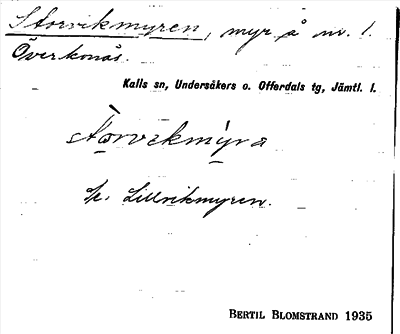 Storvikmyren, myr å nr. 1.
Överkonäs.
Kalls sn, Undersåkers o. Offerdals tg, Jämtl. l.
stòrvikmýra
Lillvikmyren.
BERTIL BLOMSTRAND 1935